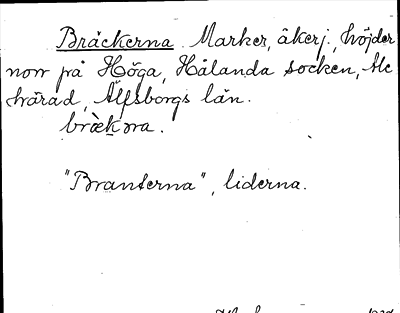 Bräckerna. Marker, åkerj., höjder
norr på Höga, Hålanda socken, Ale
härad, Älfsborgs län.
"Branterna", liderna.